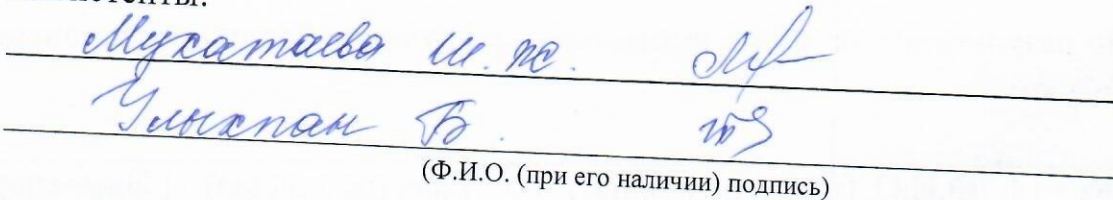 Мукатаева Ш. Ж.
Улыкпан Б.
(Ф.И.О. (при его наличии) подпись)